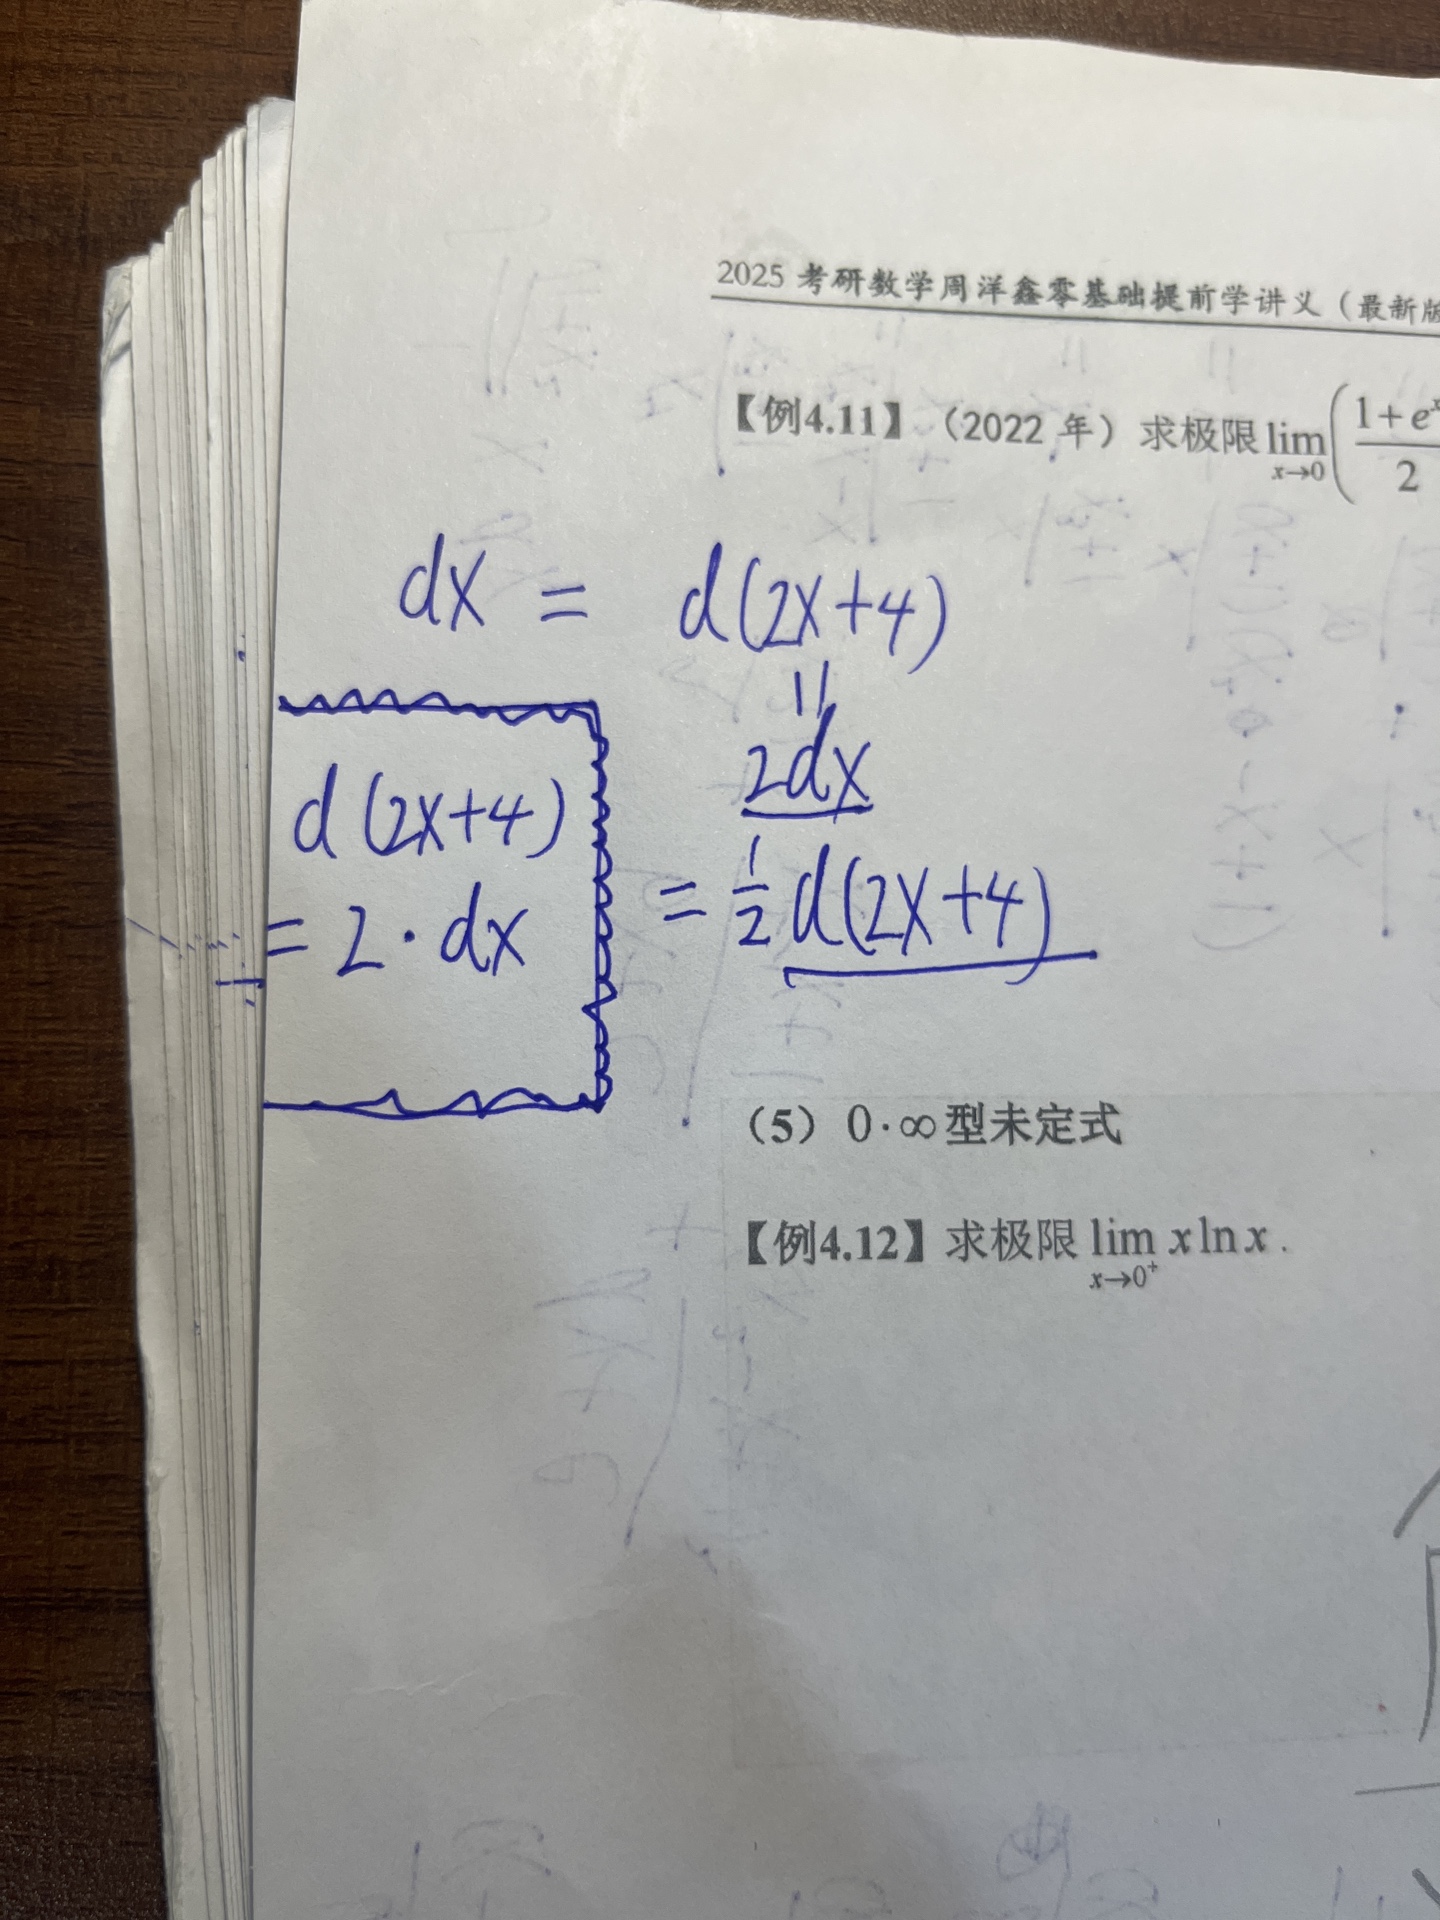 2025 考研数学周洋鑫零基础提前学讲义（最新版
【例4.11】（2022 年）求极限 lim x→0 ( 1+eˣ / 2
dx = d(2x+4)
||
2dx
= 1/2 d(2x+4)
d(2x+4)
= 2·dx
（5）0·∞型未定式
【例4.12】求极限 lim x→0⁺ x ln x .